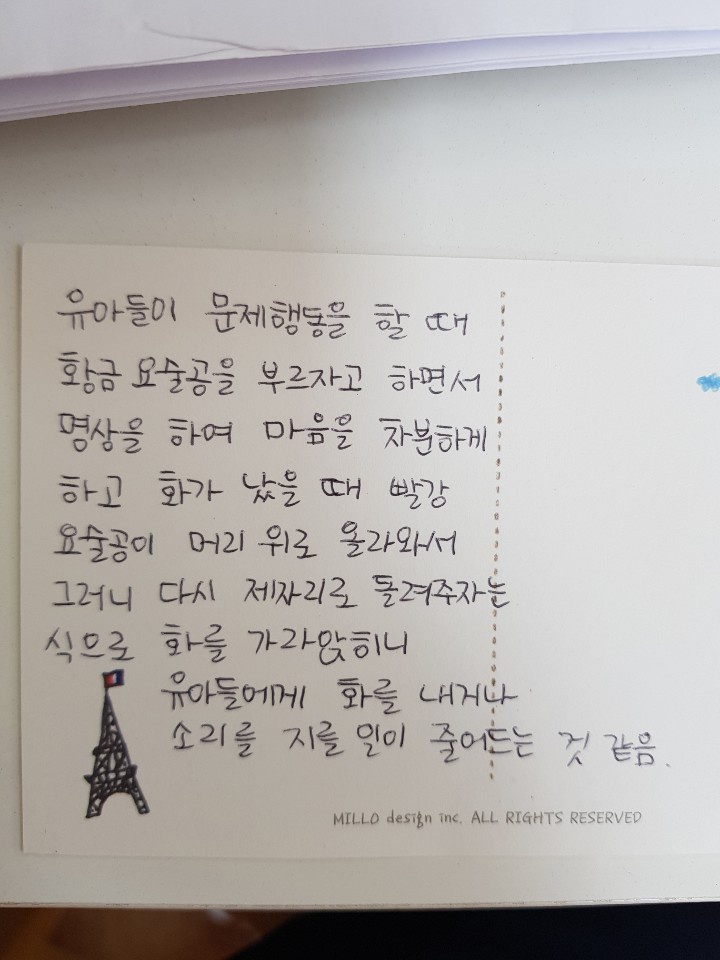 유아들이 문제행동을 할 때
황금 요술공을 부르자고 하면서
명상을 하여 마음을 차분하게
하고 화가 났을 때 빨강
요술공이 머리 위로 올라와서
그러니 다시 제자리로 돌려주자는
식으로 화를 가라앉히니
유아들에게 화를 내거나
소리를 지를 일이 줄어드는 것 같음.
MILLO design inc. ALL RIGHTS RESERVED